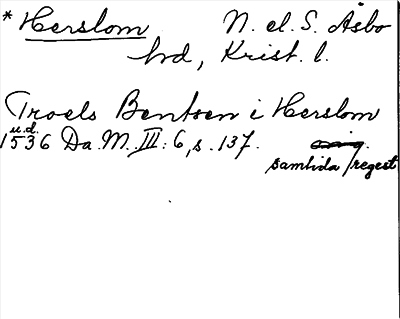 * Herslom N. el. S. Åsbo
hd, Krist. l.
Troels Bentsen i Herslom
u.d.
1536 Da. M. III: 6, s. 137.
samtida regest